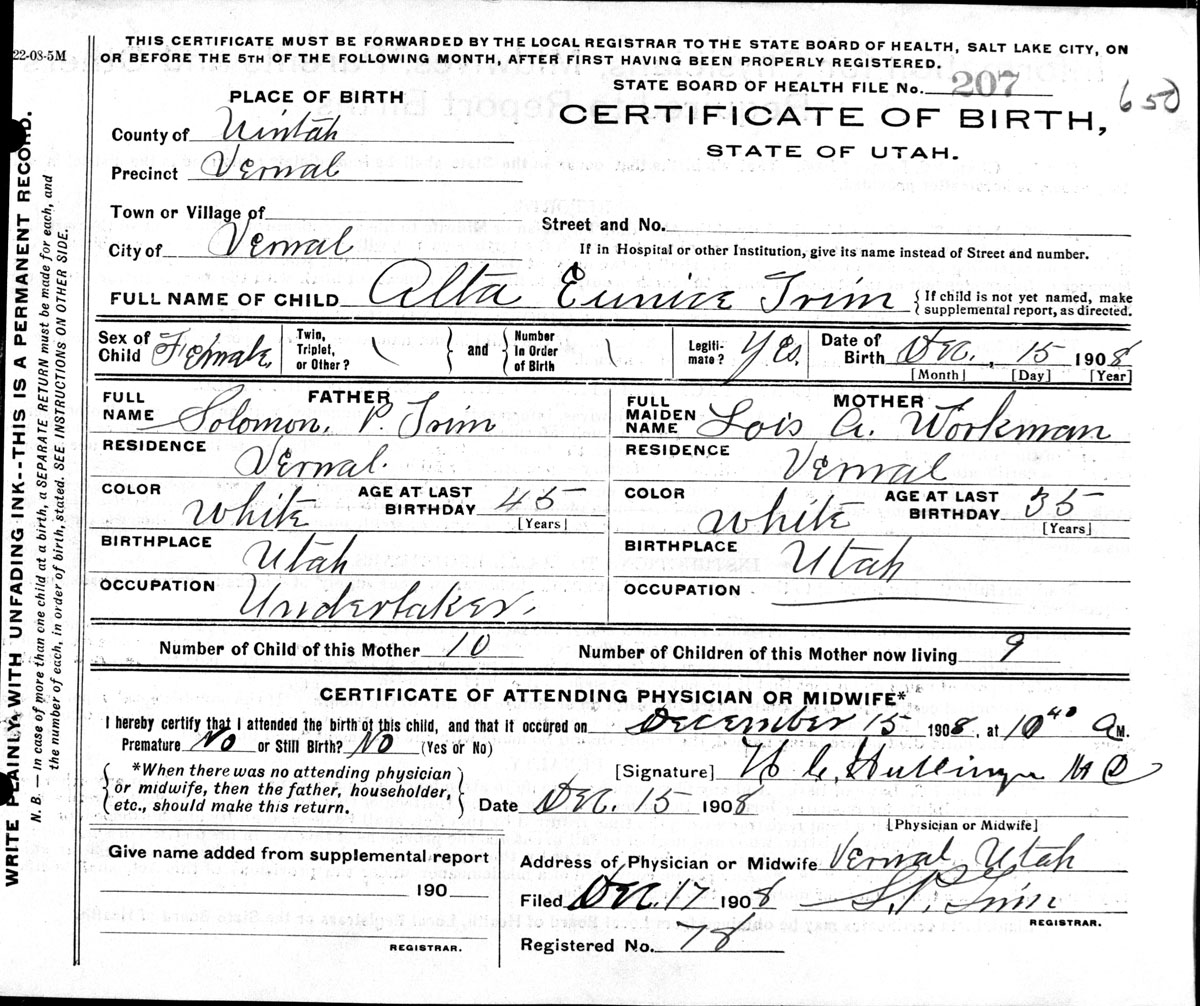 22-08-5M
THIS CERTIFICATE MUST BE FORWARDED BY THE LOCAL REGISTRAR TO THE STATE BOARD OF HEALTH, SALT LAKE CITY, ON
OR BEFORE THE 5TH OF THE FOLLOWING MONTH, AFTER FIRST HAVING BEEN PROPERLY REGISTERED.
STATE BOARD OF HEALTH FILE No. 207
650
CERTIFICATE OF BIRTH,
STATE OF UTAH.
PLACE OF BIRTH
County of Uintah
Precinct Vernal
Town or Village of
Street and No.
City of Vernal
If in Hospital or other Institution, give its name instead of Street and number.
FULL NAME OF CHILD Alta Eunice Trim { If child is not yet named, make supplemental report, as directed.
Sex of Child Female Twin, Triplet, or Other? \ } and { Number In Order of Birth \ Legiti- mate? Yes. Date of Birth Dec., 15 1908
[Month] [Day] [Year]
FATHER
FULL NAME Solomon. P. Trim
RESIDENCE Vernal.
COLOR White AGE AT LAST BIRTHDAY 45
[Years]
BIRTHPLACE Utah
OCCUPATION Undertaker.
MOTHER
FULL MAIDEN NAME Lois A. Workman
RESIDENCE Vernal
COLOR White AGE AT LAST BIRTHDAY 35
[Years]
BIRTHPLACE Utah
OCCUPATION
Number of Child of this Mother 10 Number of Children of this Mother now living 9
CERTIFICATE OF ATTENDING PHYSICIAN OR MIDWIFE*
I hereby certify that I attended the birth of this child, and that it occured on December 15 1908, at 10 40 A M.
Premature No or Still Birth? No (Yes or No)
{ *When there was no attending physician
or midwife, then the father, householder,
etc., should make this return. }
[Signature] H C Hullinger M D
Date Dec. 15 1908
[Physician or Midwife]
Give name added from supplemental report
190
REGISTRAR.
Address of Physician or Midwife Vernal, Utah
Filed Dec. 17 1908 S. P. Trim
REGISTRAR.
Registered No. 78
WRITE PLAINLY WITH UNFADING INK--THIS IS A PERMANENT RECORD.
N. B. — In case of more than one child at a birth, a SEPARATE RETURN must be made for each, and
the number of each, in order of birth, stated. SEE INSTRUCTIONS ON OTHER SIDE.